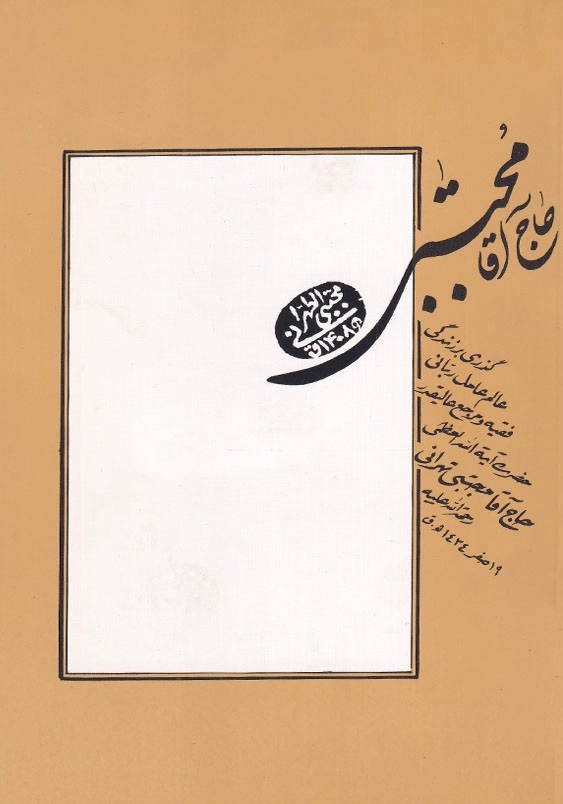 حاج آقا مجتبی
مجتبی الطهرانی
۱۴۰۸ق
گذری بر زندگی
عالم عامل ربانی
فقیه و مرجع عالیقدر
حضرت آیة الله العظمی
حاج آقا مجتبی تهرانی
رحمة الله علیه
۱۹ صفر ۱۴۳۴ ه‍.ق